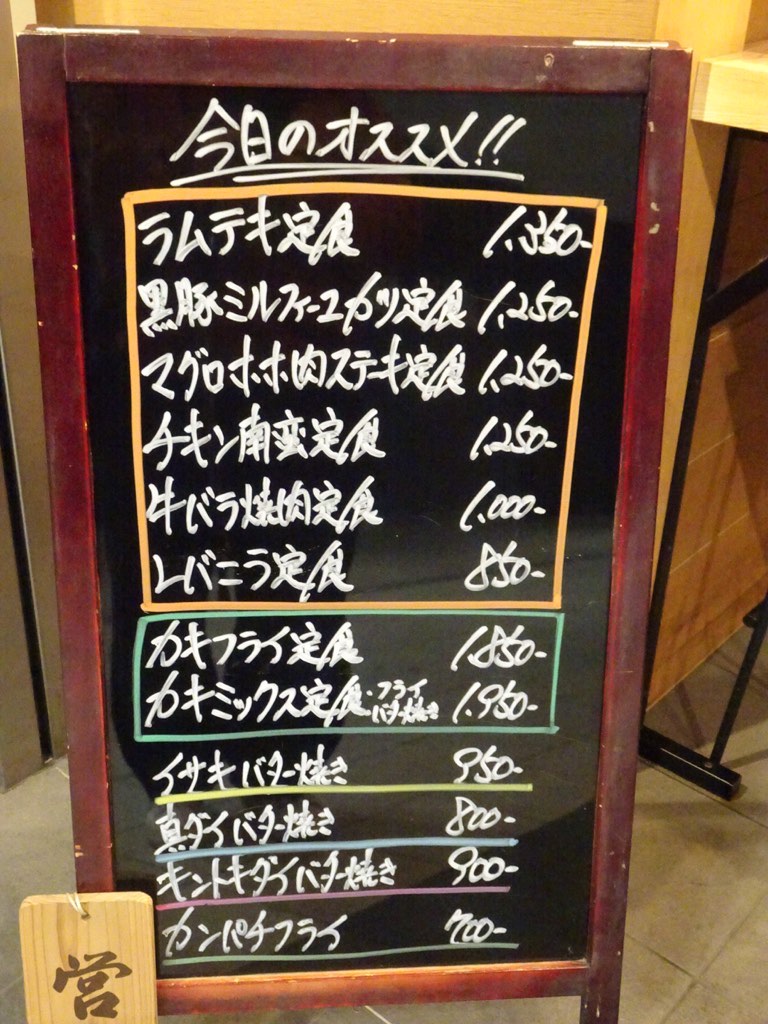 今日のオススメ!!
ラムテキ定食 1,350-
黒豚ミルフィーユカツ定食 1,250-
マグロホホ肉ステーキ定食 1,250-
チキン南蛮定食 1,250-
牛バラ焼肉定食 1,000-
レバニラ定食 850-
カキフライ定食 1,850-
カキミックス定食・フライ バター焼き 1,950-
イサキバター焼き 950-
真ダイバター焼き 800-
キントキダイバター焼き 900-
カンパチフライ 700-
営